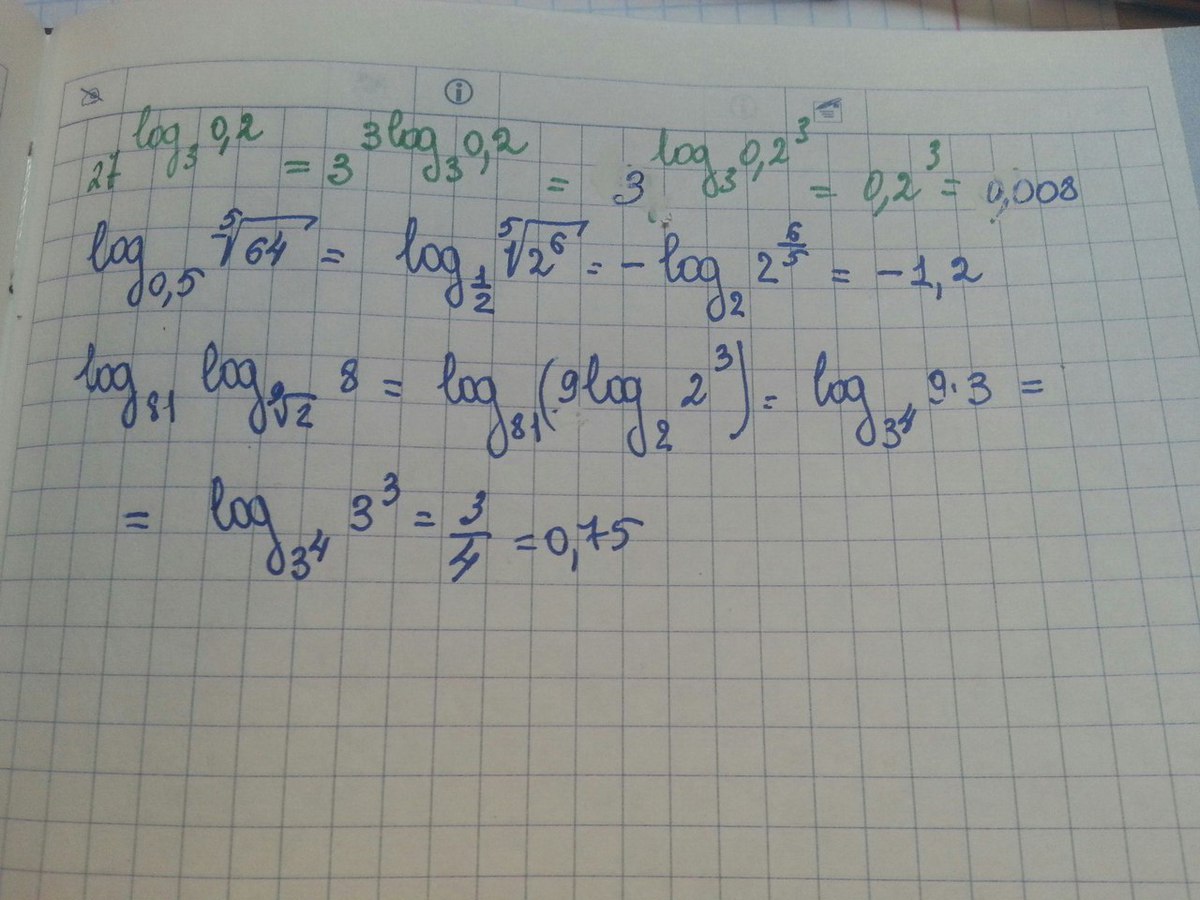 27^{log_3 0,2} = 3^{3log_3 0,2} = 3^{log_3 0,2^3} = 0,2^3 = 0,008
log_{0,5} \sqrt[5]{64} = log_{\frac{1}{2}} \sqrt[5]{2^6} = -log_2 2^{\frac{6}{5}} = -1,2
log_{81} log_{\sqrt[9]{2}} 8 = log_{81}(9log_2 2^3) = log_{3^4} 9·3 =
= log_{3^4} 3^3 = \frac{3}{4} = 0,75